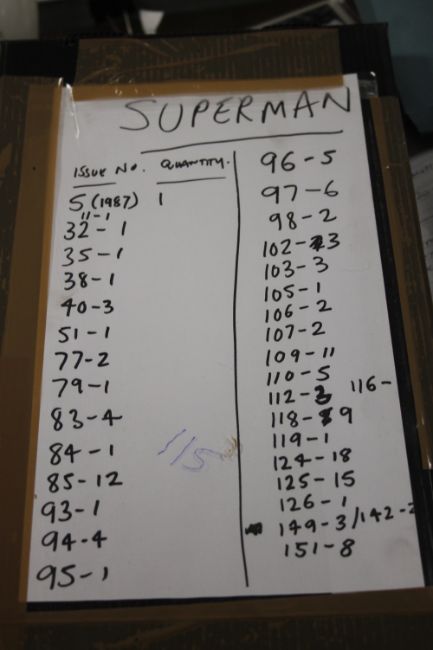 SUPERMAN
ISSUE NO. QUANTITY.
5 (1987) 1
11-1
32-1
35-1
38-1
40-3
51-1
77-2
79-1
83-4
84-1
85-12
93-1
94-4
95-1
115
96-5
97-6
98-2
102-3
103-3
105-1
106-2
107-2
109-11
110-5
112-3 116-
118-9
119-1
124-18
125-15
126-1
149-3/142-2
151-8